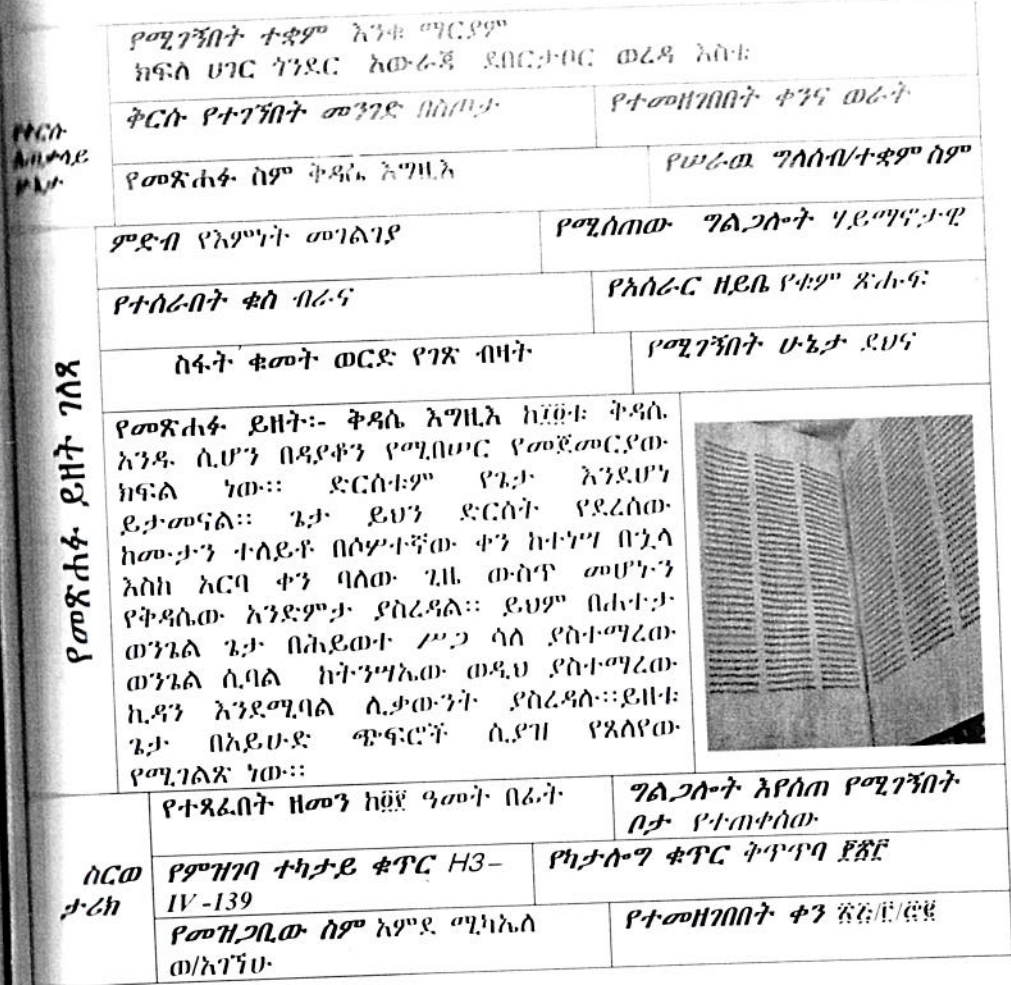 የሚገኝበት ተቋም እንቁ ማርያም
ክፍለ ሀገር ጎንደር አውራጃ ደበርታቦር ወረዳ እስቴ
ቅርሱ የተገኘበት መንገድ በስጦታ
የተመዘገበበት ቀንና ወራት
የቅርሱ
አጠቃላይ
ሁኔታ
የመጽሐፉ ስም ቅዳሴ እግዚእ
የሠራዉ ግለሰብ/ተቋም ስም
ምድብ የእምነት መገልገያ
የሚሰጠው ግልጋሎት ሃይማኖታዊ
የተሰራበት ቁስ ብራና
የአሰራር ዘይቤ የቁም ጽሑፍ
ስፋት ቁመት ወርድ የገጽ ብዛት
የሚገኝበት ሁኔታ ደህና
የመጽሐፉ ይዘት ገለጻ
የመጽሐፉ ይዘት:- ቅዳሴ እግዚእ ከ፲፬ቱ ቅዳሴ
አንዱ ሲሆን በዳያቆን የሚበሠር የመጀመርያው
ክፍል ነው። ድርሰቱም የጌታ እንደሆነ
ይታመናል። ጌታ ይህን ድርሰት የደረሰው
ከሙታን ተለይቶ በሶሦተኛው ቀን ከተነሣ በኂላ
እስከ አርባ ቀን ባለው ጊዜ ውስጥ መሆኑን
የቅዳሴው አንድምታ ያስረዳል። ይህም በሐተታ
ወንጌል ጌታ በሕይወተ ሥጋ ሳለ ያስተማረው
ወንጌል ሲባል ከትንሣኤው ወዲህ ያስተማረው
ኪዳን እንደሚባል ሊቃውንት ያስረዳሉ።ይዘቱ
ጌታ በአይሁድ ጭፍሮች ሲያዝ የጸለየው
የሚገልጽ ነው።
የተጻፈበት ዘመን ዓመት በፊት
ግልጋሎት እየሰጠ የሚገኝበት
ቦታ የተጠቀሰው
ስርወ
ታሪክ
የምዝገባ ተካታይ ቁጥር H3-
IV -139
የካታሎግ ቁጥር ቅጥጥባ
የመዝጋቢው ስም አምደ ሚካኤለ
ወ/አገኘሁ
የተመዘገበበት ቀን